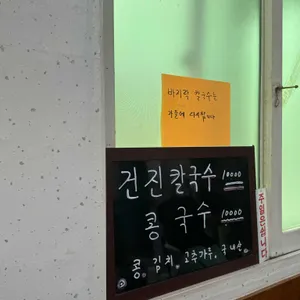 바지락 칼국수는
가을에 시작합니다
건진칼국수 10000
콩 국수 10000
콩, 김치, 고추가루, 국내산
주일은 쉽니다